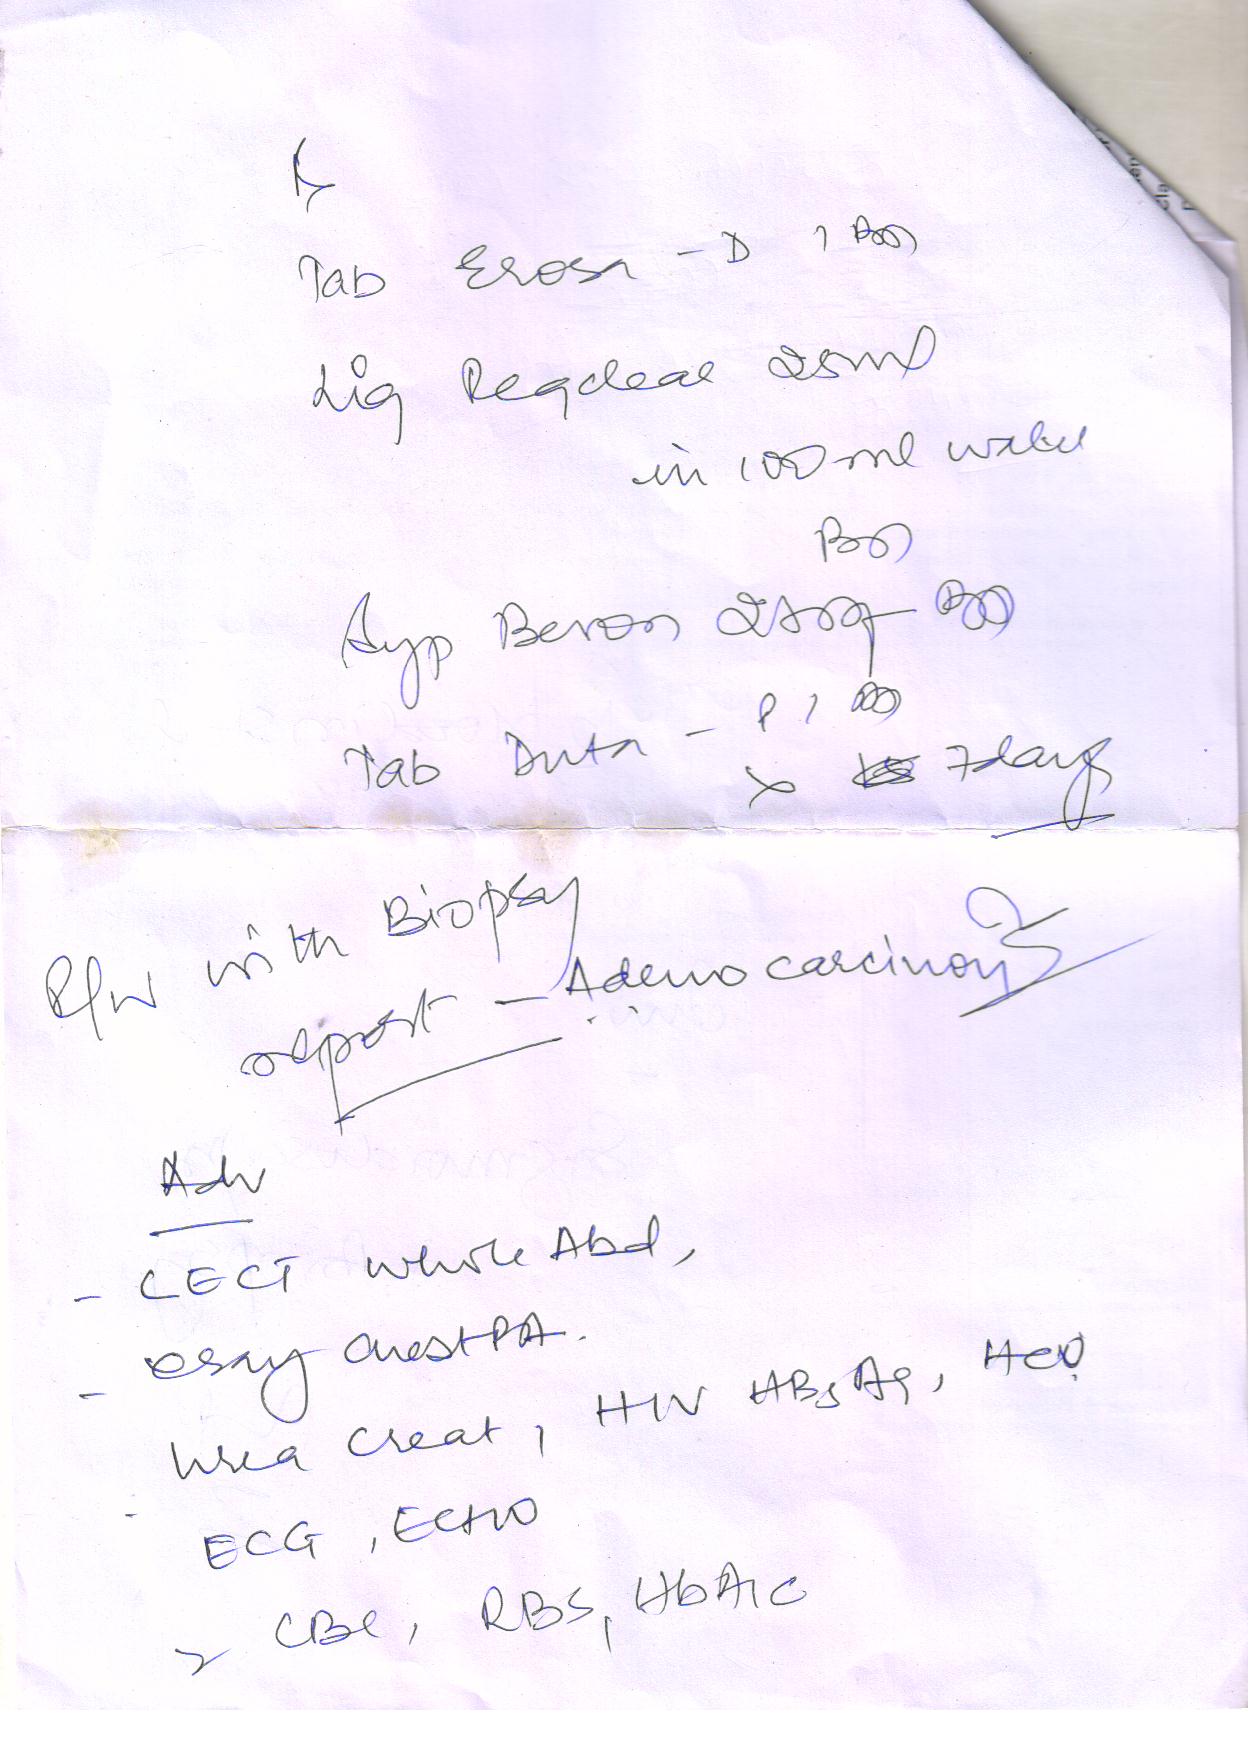 Tab Erosa - D 1 BD
Liq Regclear 25ml
in 100 ml water
BD
Syp Bevon 2tsf BD
Tab Duta - P 1 OD
x 7days
R/w with Biopsy
report - Adenocarcinoma
Adv
- CECT whole Abd,
- xray chest PA.
Urea Creat, HIV HBsAg, HCV
- ECG, ECHO
CBC, RBS, HbA1c